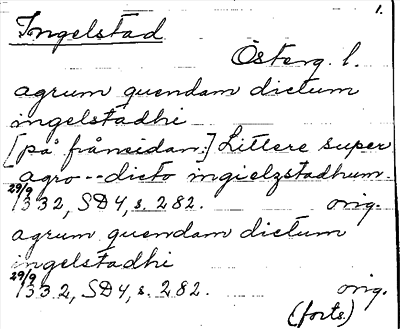 1.
Ingelstad
Österg. l.
agrum quendam dictum
ingelstadhi
[på frånsidan:] Littere super
agro -- dicto ingielzstadhum.
29/9 1332, SD4, s. 282. orig.
agrum quendam dictum
ingelstadhi
29/9 1332, SD4, s. 282. orig.
(forts)